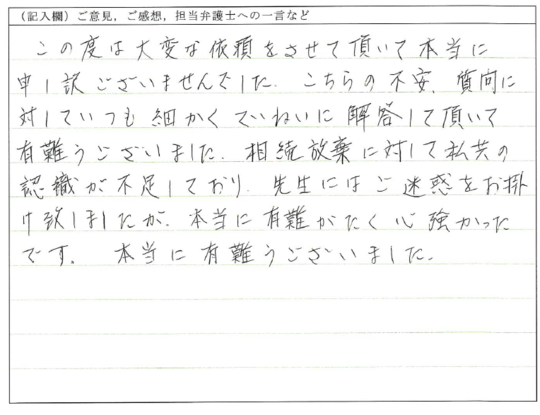 （記入欄）ご意見，ご感想，担当弁護士への一言など
この度は大変な依頼をさせて頂いて本当に
申し訳ございませんでした．こちらの不安，質問に
対していつも細かくていねいに解答して頂いて
有難うございました．相続放棄に対して私共の
認識が不足しており，先生にはご迷惑をお掛
け致しましたが，本当に有難がたく心強かった
です．本当に有難うございました．